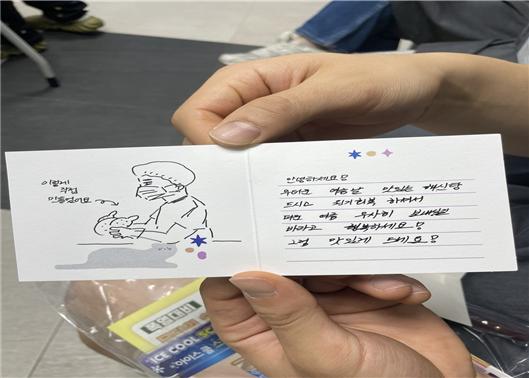 이렇게
직접
만들었어요
안녕하세요 :)
무더운 여름날 맛있는 해신탕
드시고 원기회복 하셔서
더운 여름 무사히 보내셨음
바라고 행복하세요 :)
그럼 맛있게 드세요 :)
폭염대비
ICE COOL
아이스 쿨 스